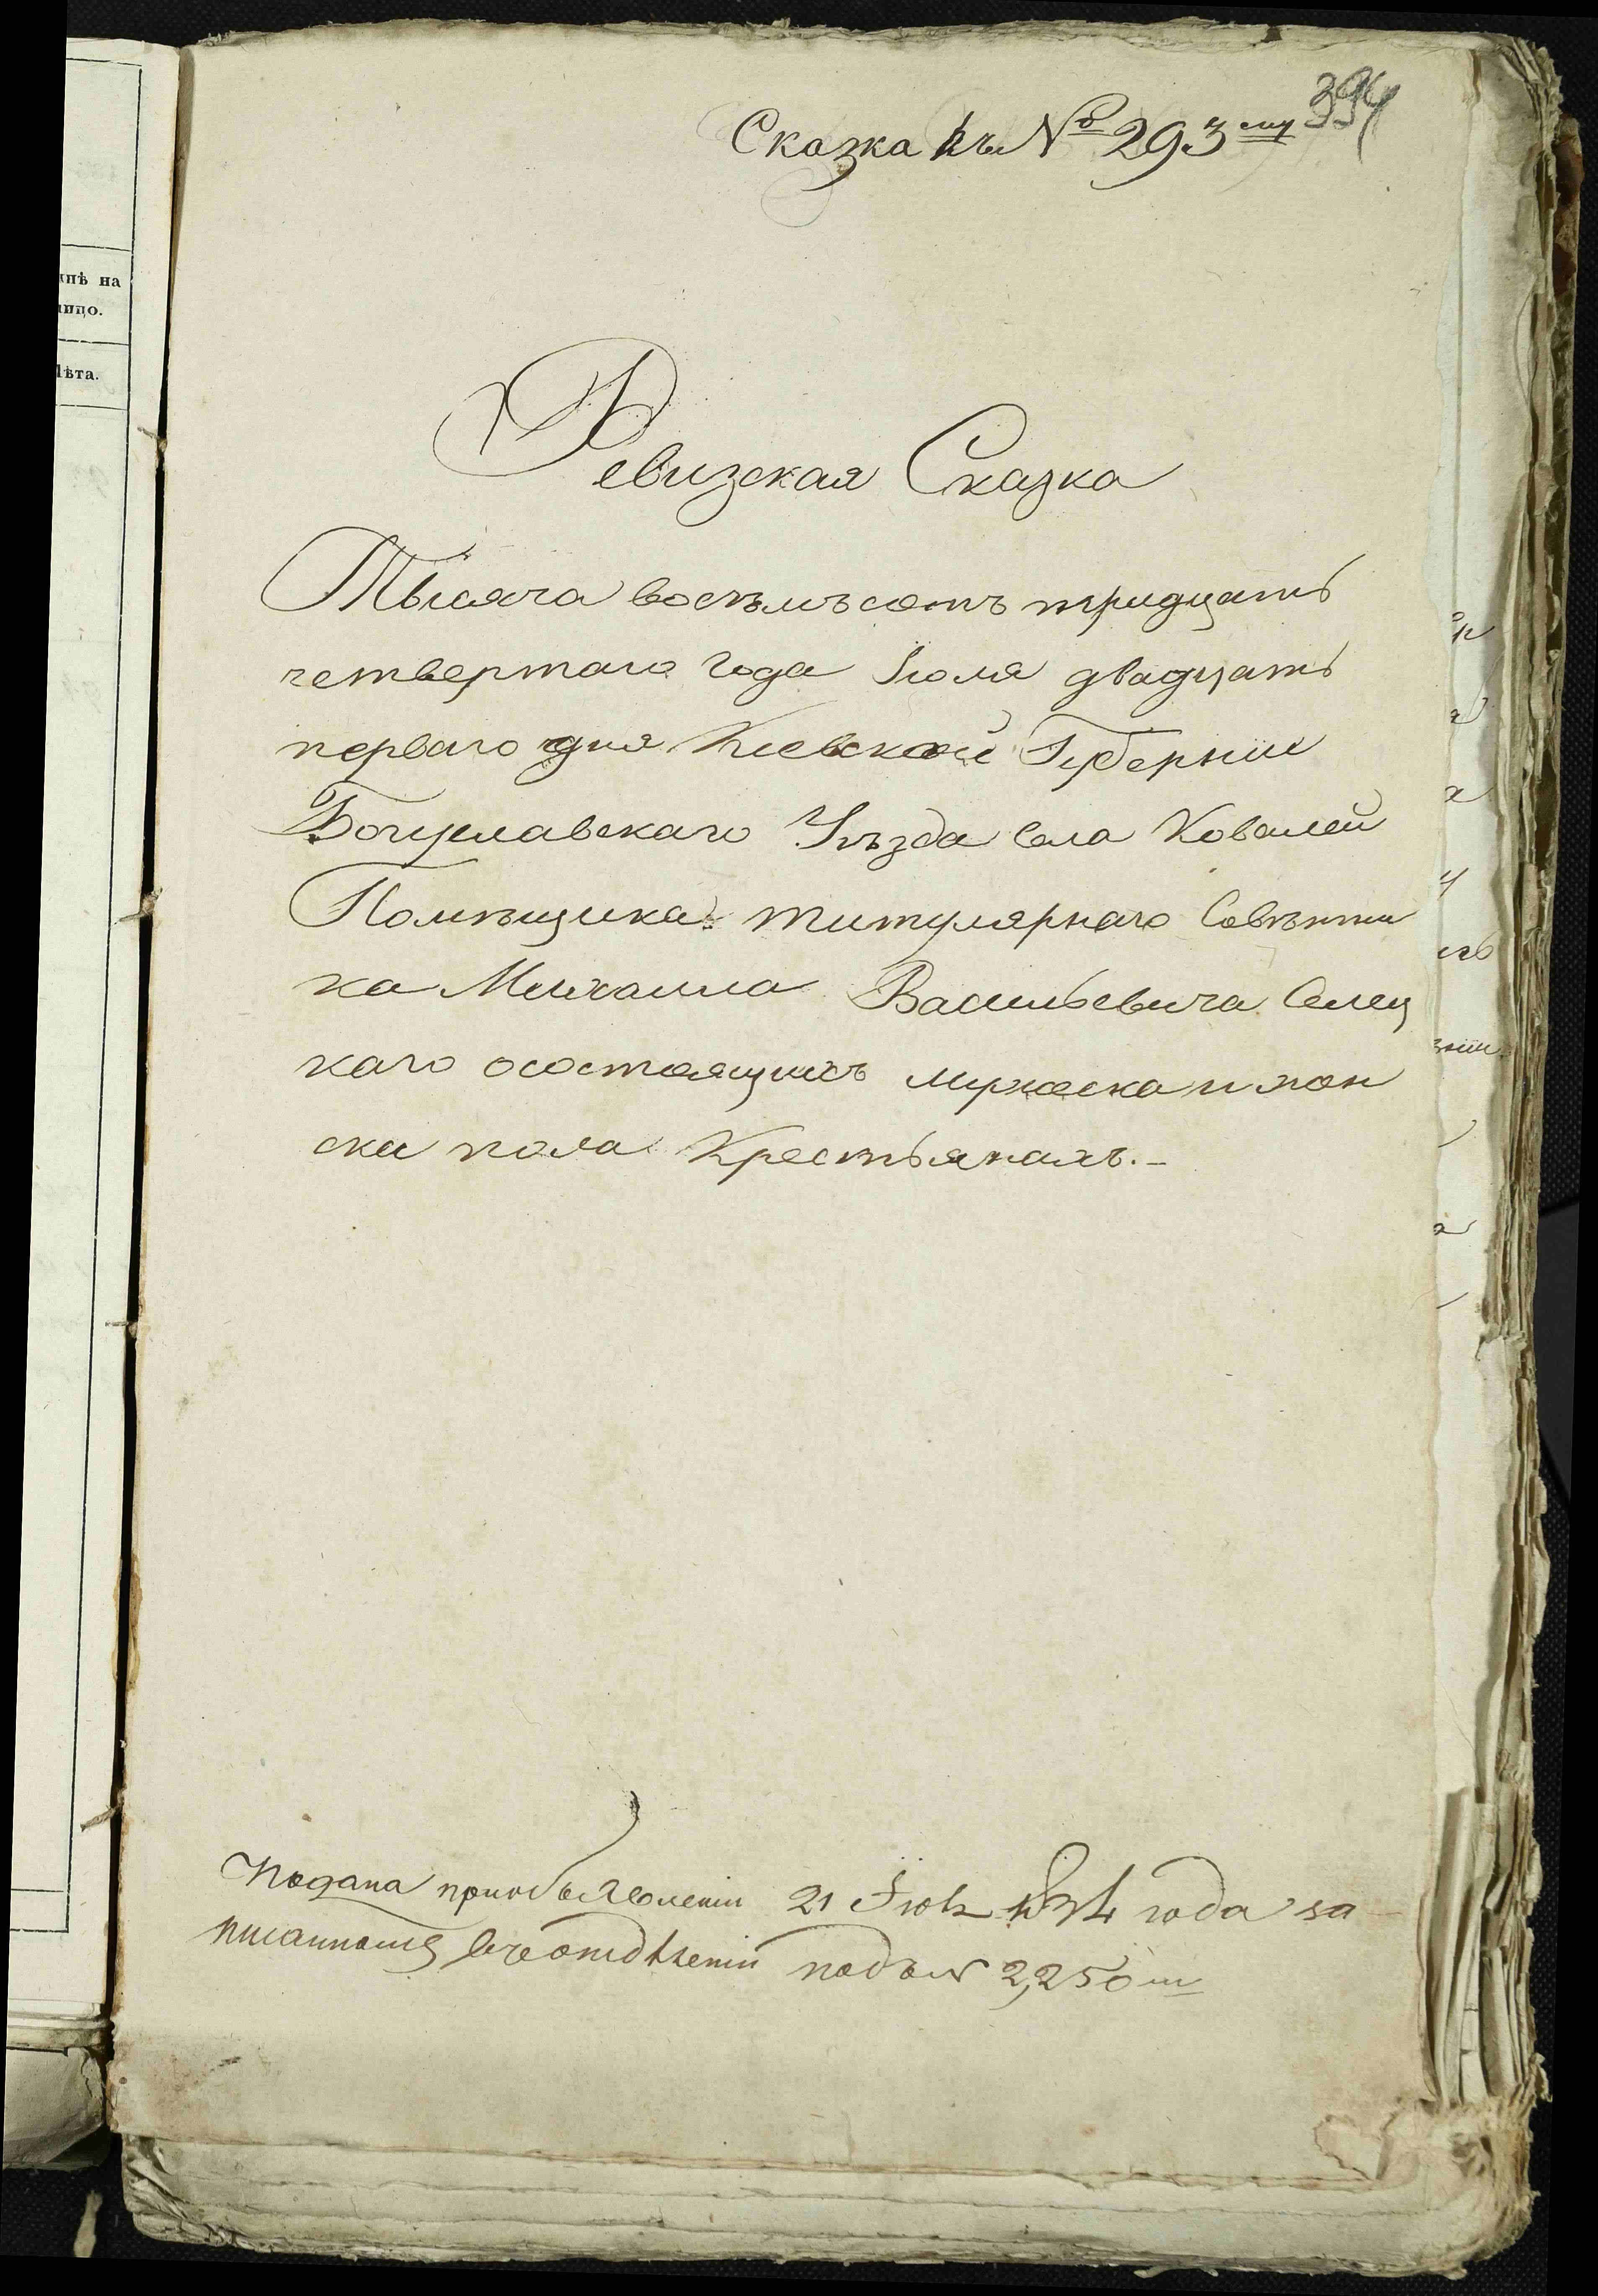 394
Сказка къ № 293 му
Ревизская Сказка
Тысяча восъмъсотъ тридцать
четвертаго года Іюля двадцать
перваго дня Кіевской Губерніи
Богуславскаго Уѣзда села Ковалей
Помѣщика титулярнаго Совѣтни
ка Михаила Васильевича Селец
каго осостоящихъ мужеска и жен
ска пола Крестьянахъ.-
Подана приобъявленіи 21 Іюля 1834 года за
писанномъ вчеотдѣленіи подъ № 2,250 м
нѣ на
лицо.
Лѣта.